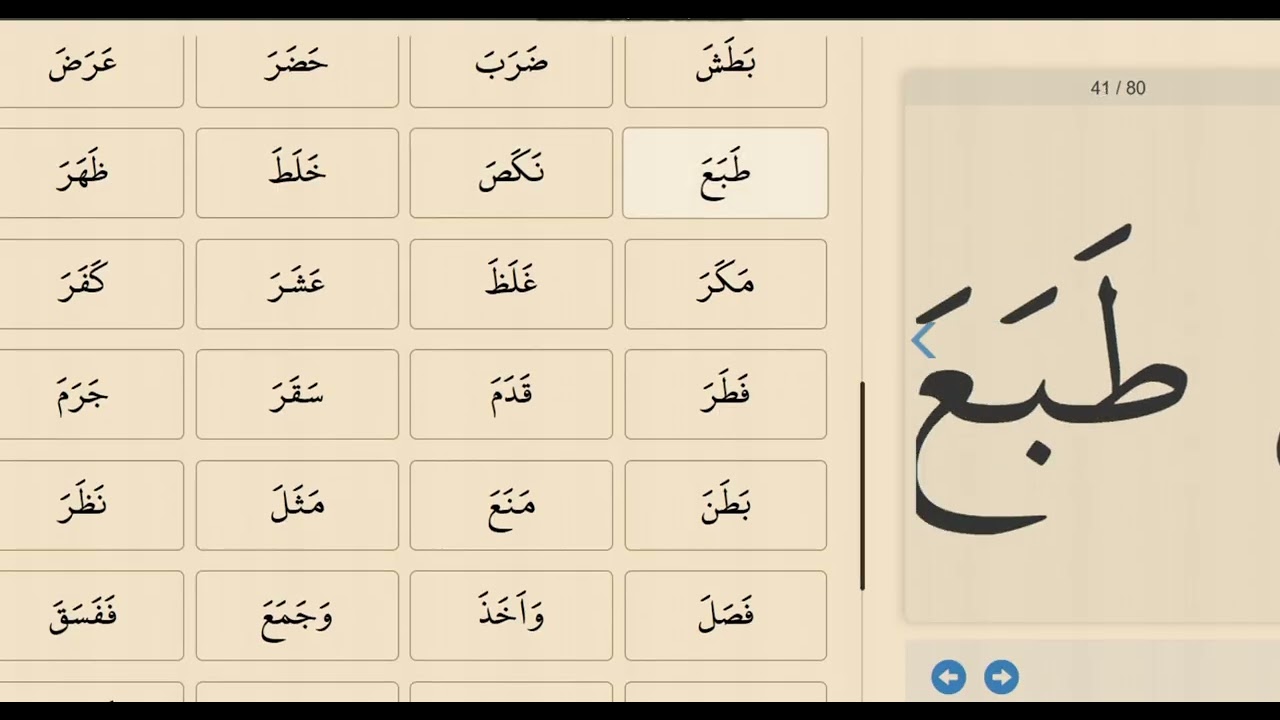 بَطَشَ ضَرَبَ حَضَرَ عَرَضَ
طَبَعَ نَكَصَ خَلَطَ ظَهَرَ
مَكَرَ غَلَظَ عَشَرَ كَفَرَ
فَطَرَ قَدَمَ سَقَرَ جَرَمَ
بَطَنَ مَنَعَ مَثَلَ نَظَرَ
فَصَلَ وَاَخَذَ وَجَمَعَ فَفَسَقَ
41 / 80
طَبَعَ